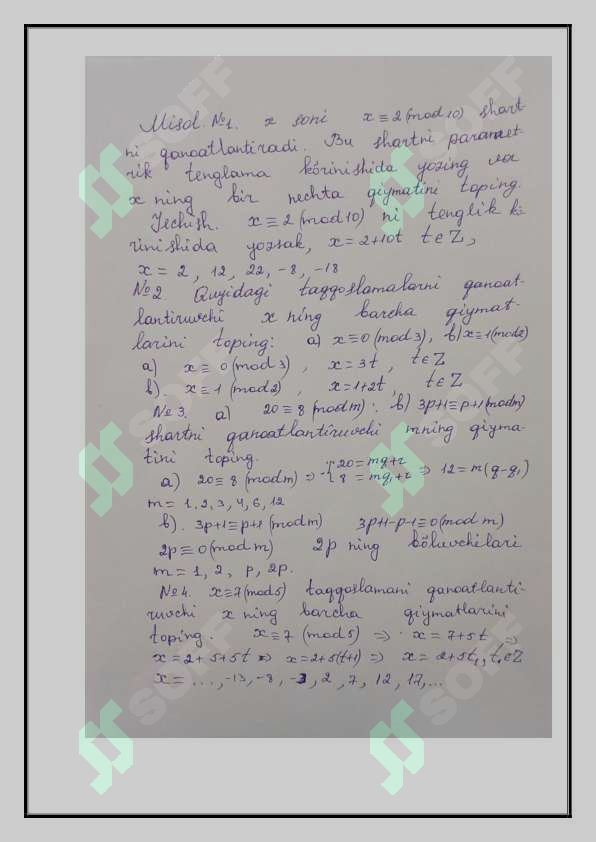 Misol. №1. x soni x ≡ 2 (mod 10) shart-
ni qanoatlantiradi. Bu shartni paramet-
rik tenglama ko'rinishida yozing va
x ning bir nechta qiymatini toping.
Yechish. x ≡ 2 (mod 10) ni tenglik kö
rinishida yozsak, x = 2+10t t∈Z,
x = 2, 12, 22, -8, -18
№2. Quyidagi taqqoslamalarni qanoat-
lantiruvchi x ning barcha qiymat-
larini toping: a) x≡0 (mod 3), b) x≡1 (mod 2)
a) x ≡ 0 (mod 3), x = 3t, t∈Z
b). x ≡ 1 (mod 2), x = 1+2t, t∈Z
№3. a) 20 ≡ 8 (mod m). b) 3p+1≡p+1 (mod m)
shartni qanoatlantiruvchi mning qiyma-
tini toping.
a) 20≡8 (mod m) => { 20 = mq+r
8 = mq₁+r => 12 = m(q-q₁)
m = 1, 2, 3, 4, 6, 12
b). 3p+1≡p+1 (mod m) 3p+1-p-1≡0 (mod m)
2p≡0 (mod m) 2p ning bŏluvchilari
m = 1, 2, p, 2p.
№4. x≡7 (mod 5) taqqoslamani qanoatlanti-
ruvchi x ning barcha qiymatlarini
toping. x≡7 (mod 5) => x = 7+5t =>
x = 2+5+5t => x = 2+5(t+1) => x = 2+5t₁, t₁∈Z
x = ..., -13, -8, -3, 2, 7, 12, 17,...
SOFF
SOFF
SOFF
SOFF
SOFF
SOFF